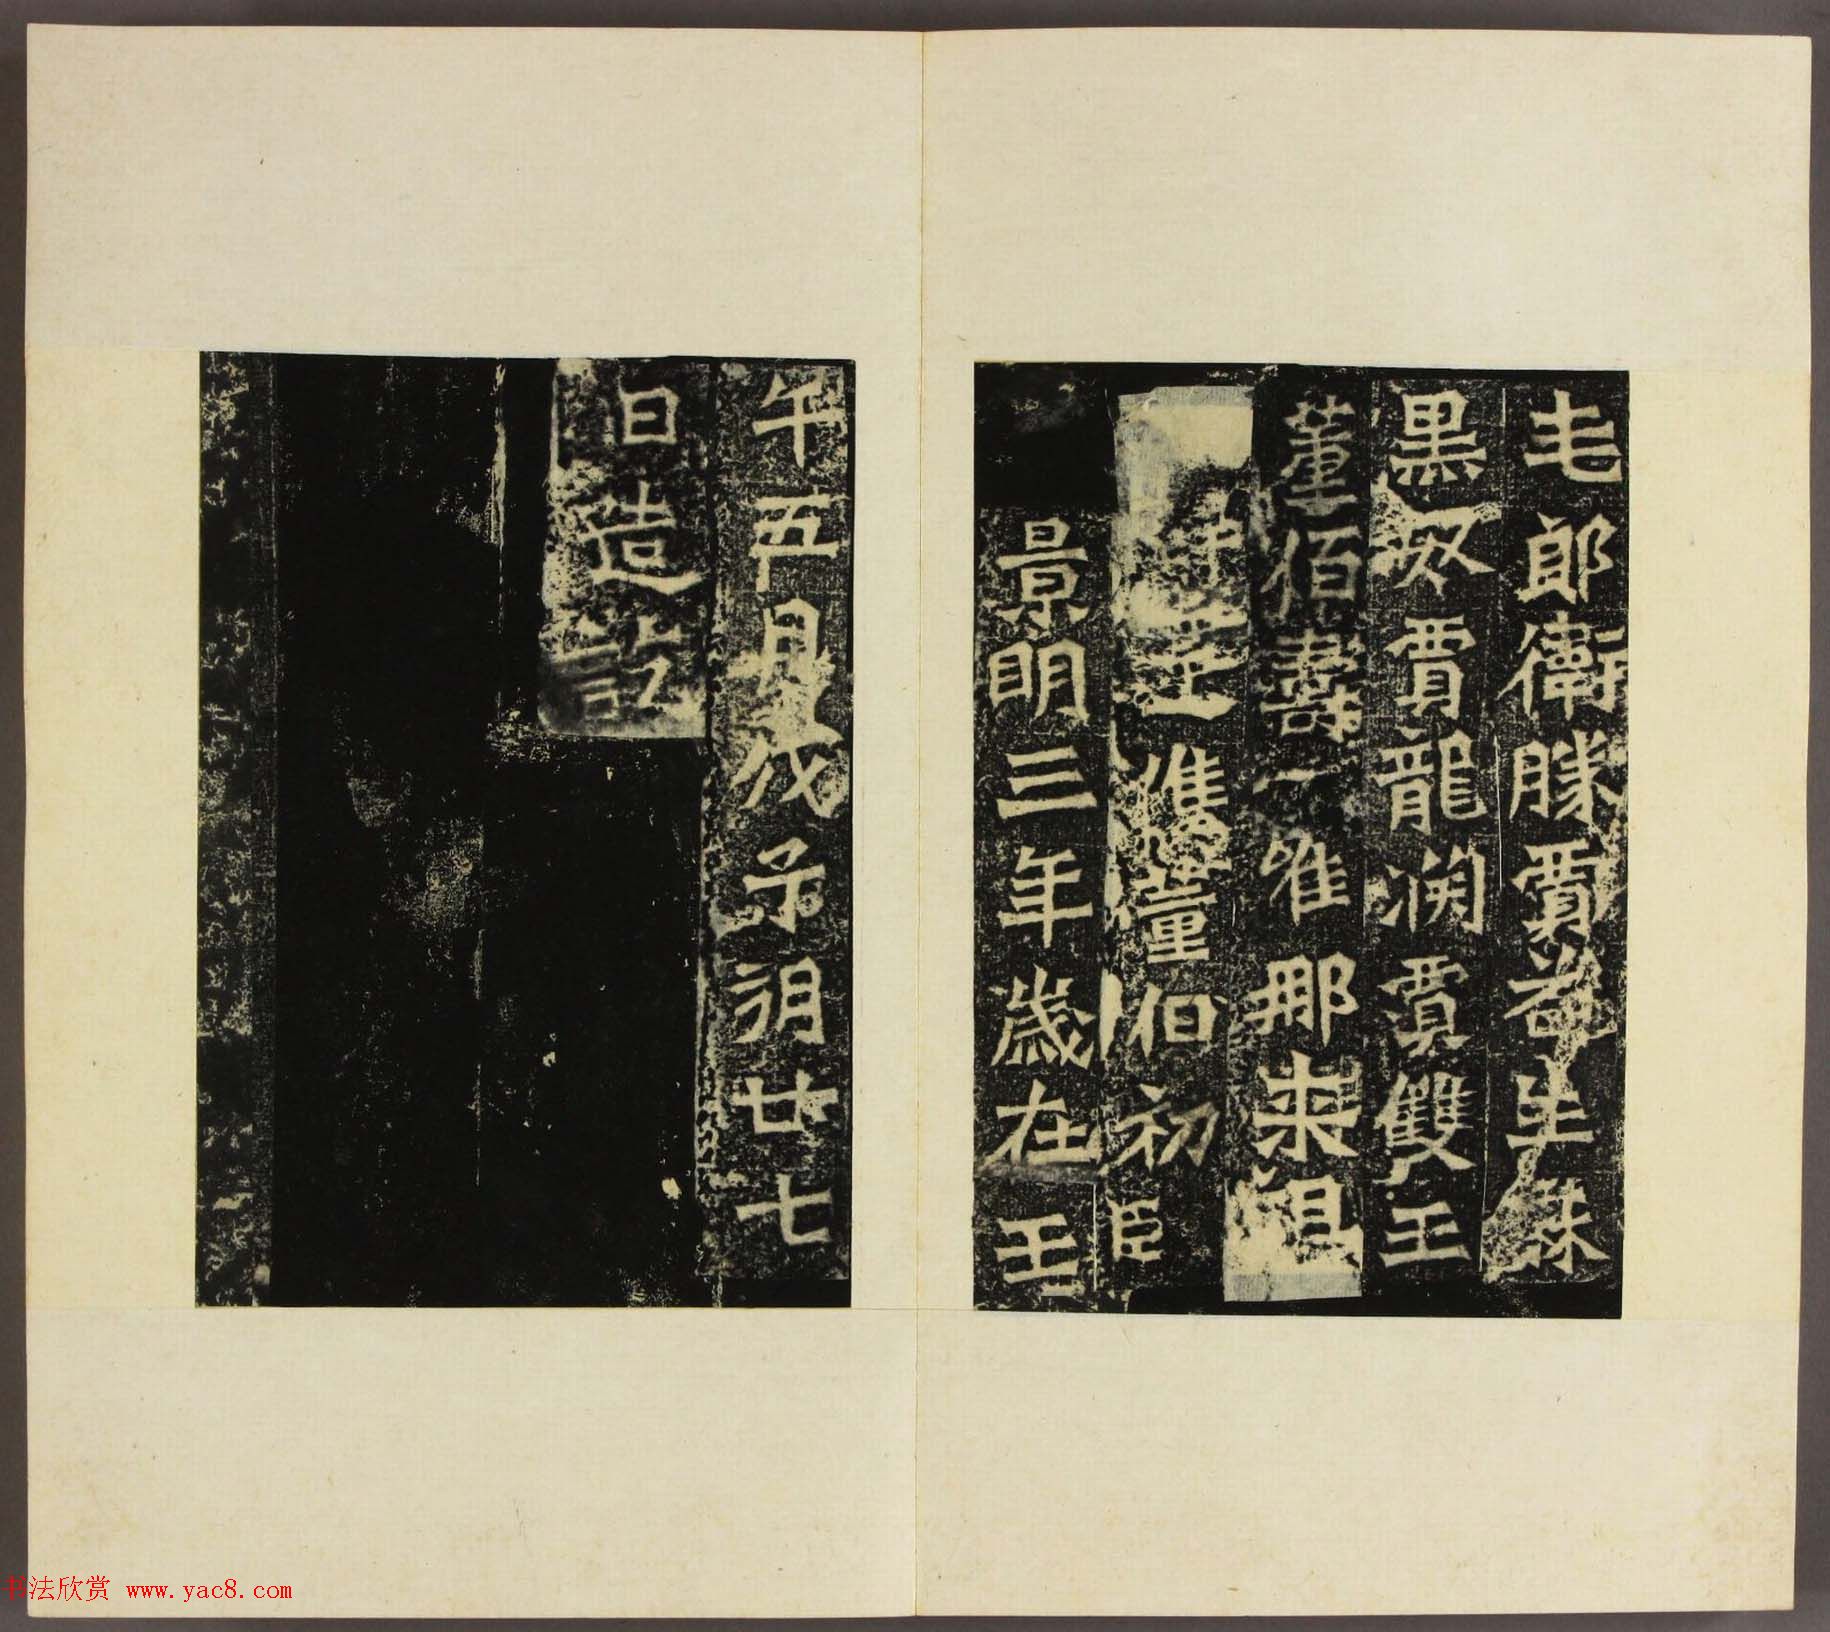 毛郎衛勝賈苟生
黑奴賈龍淵賈雙王
董佰壽唯那祖
儁董伯初
景明三年歲在壬
午五月戊子朔廿七
日造訖
书法欣赏 www.yac8.com